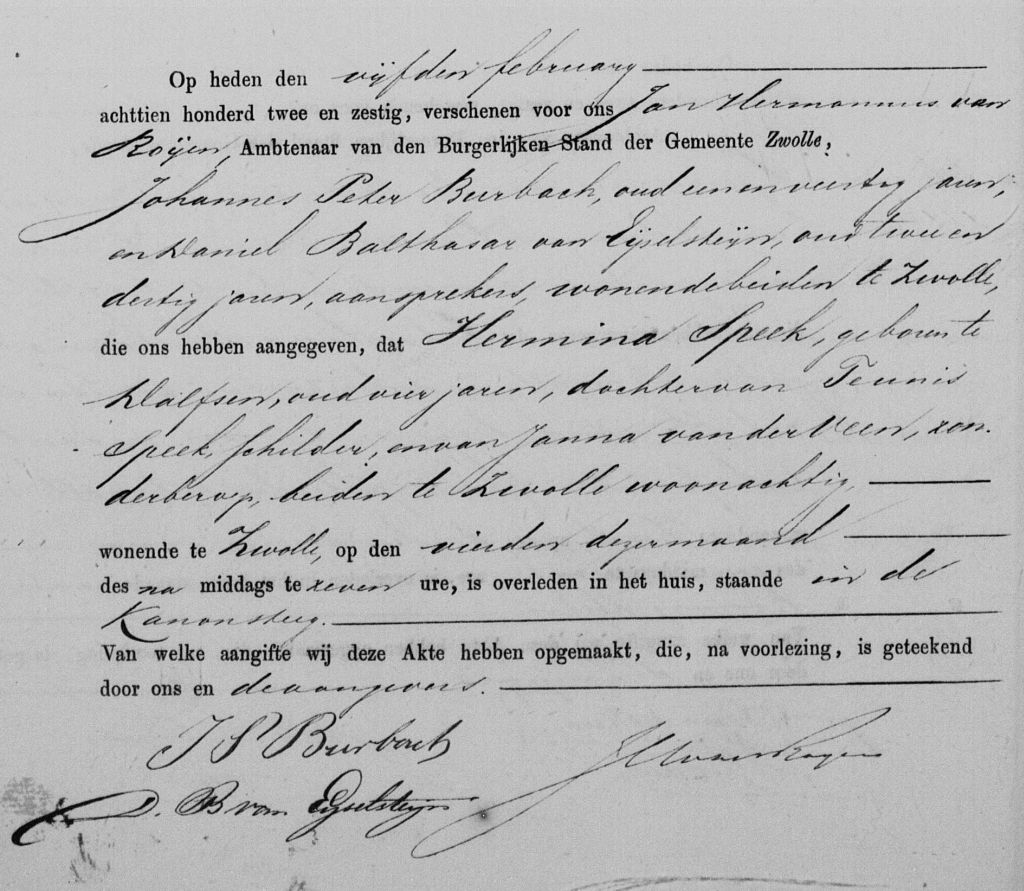 Op heden den vijfden february
achttien honderd twee en zestig, verschenen voor ons Jan Hermannus van
Roijen, Ambtenaar van den Burgerlijken Stand der Gemeente Zwolle,
Johannes Peter Burbach, oud een en veertig jaren,
en Daniel Balthasar van Eijselsteijn, oud twee en
dertig jaren, aansprekers, wonende beiden te Zwolle,
die ons hebben aangegeven, dat Hermina Speek, geboren te
Dalfsen, oud vier jaren, dochter van Teunis
Speek, schilder, en van Janna van der Veen, zon-
der beroep, beiden te Zwolle woonachtig,
wonende te Zwolle, op den vierden dezer maand
des na middags te zeven ure, is overleden in het huis, staande in de
Kanonsteeg.
Van welke aangifte wij deze Akte hebben opgemaakt, die, na voorlezing, is geteekend
door ons en de aangevers.
J P Burbach
JHvanRoijen
D. B van Eijselsteijn